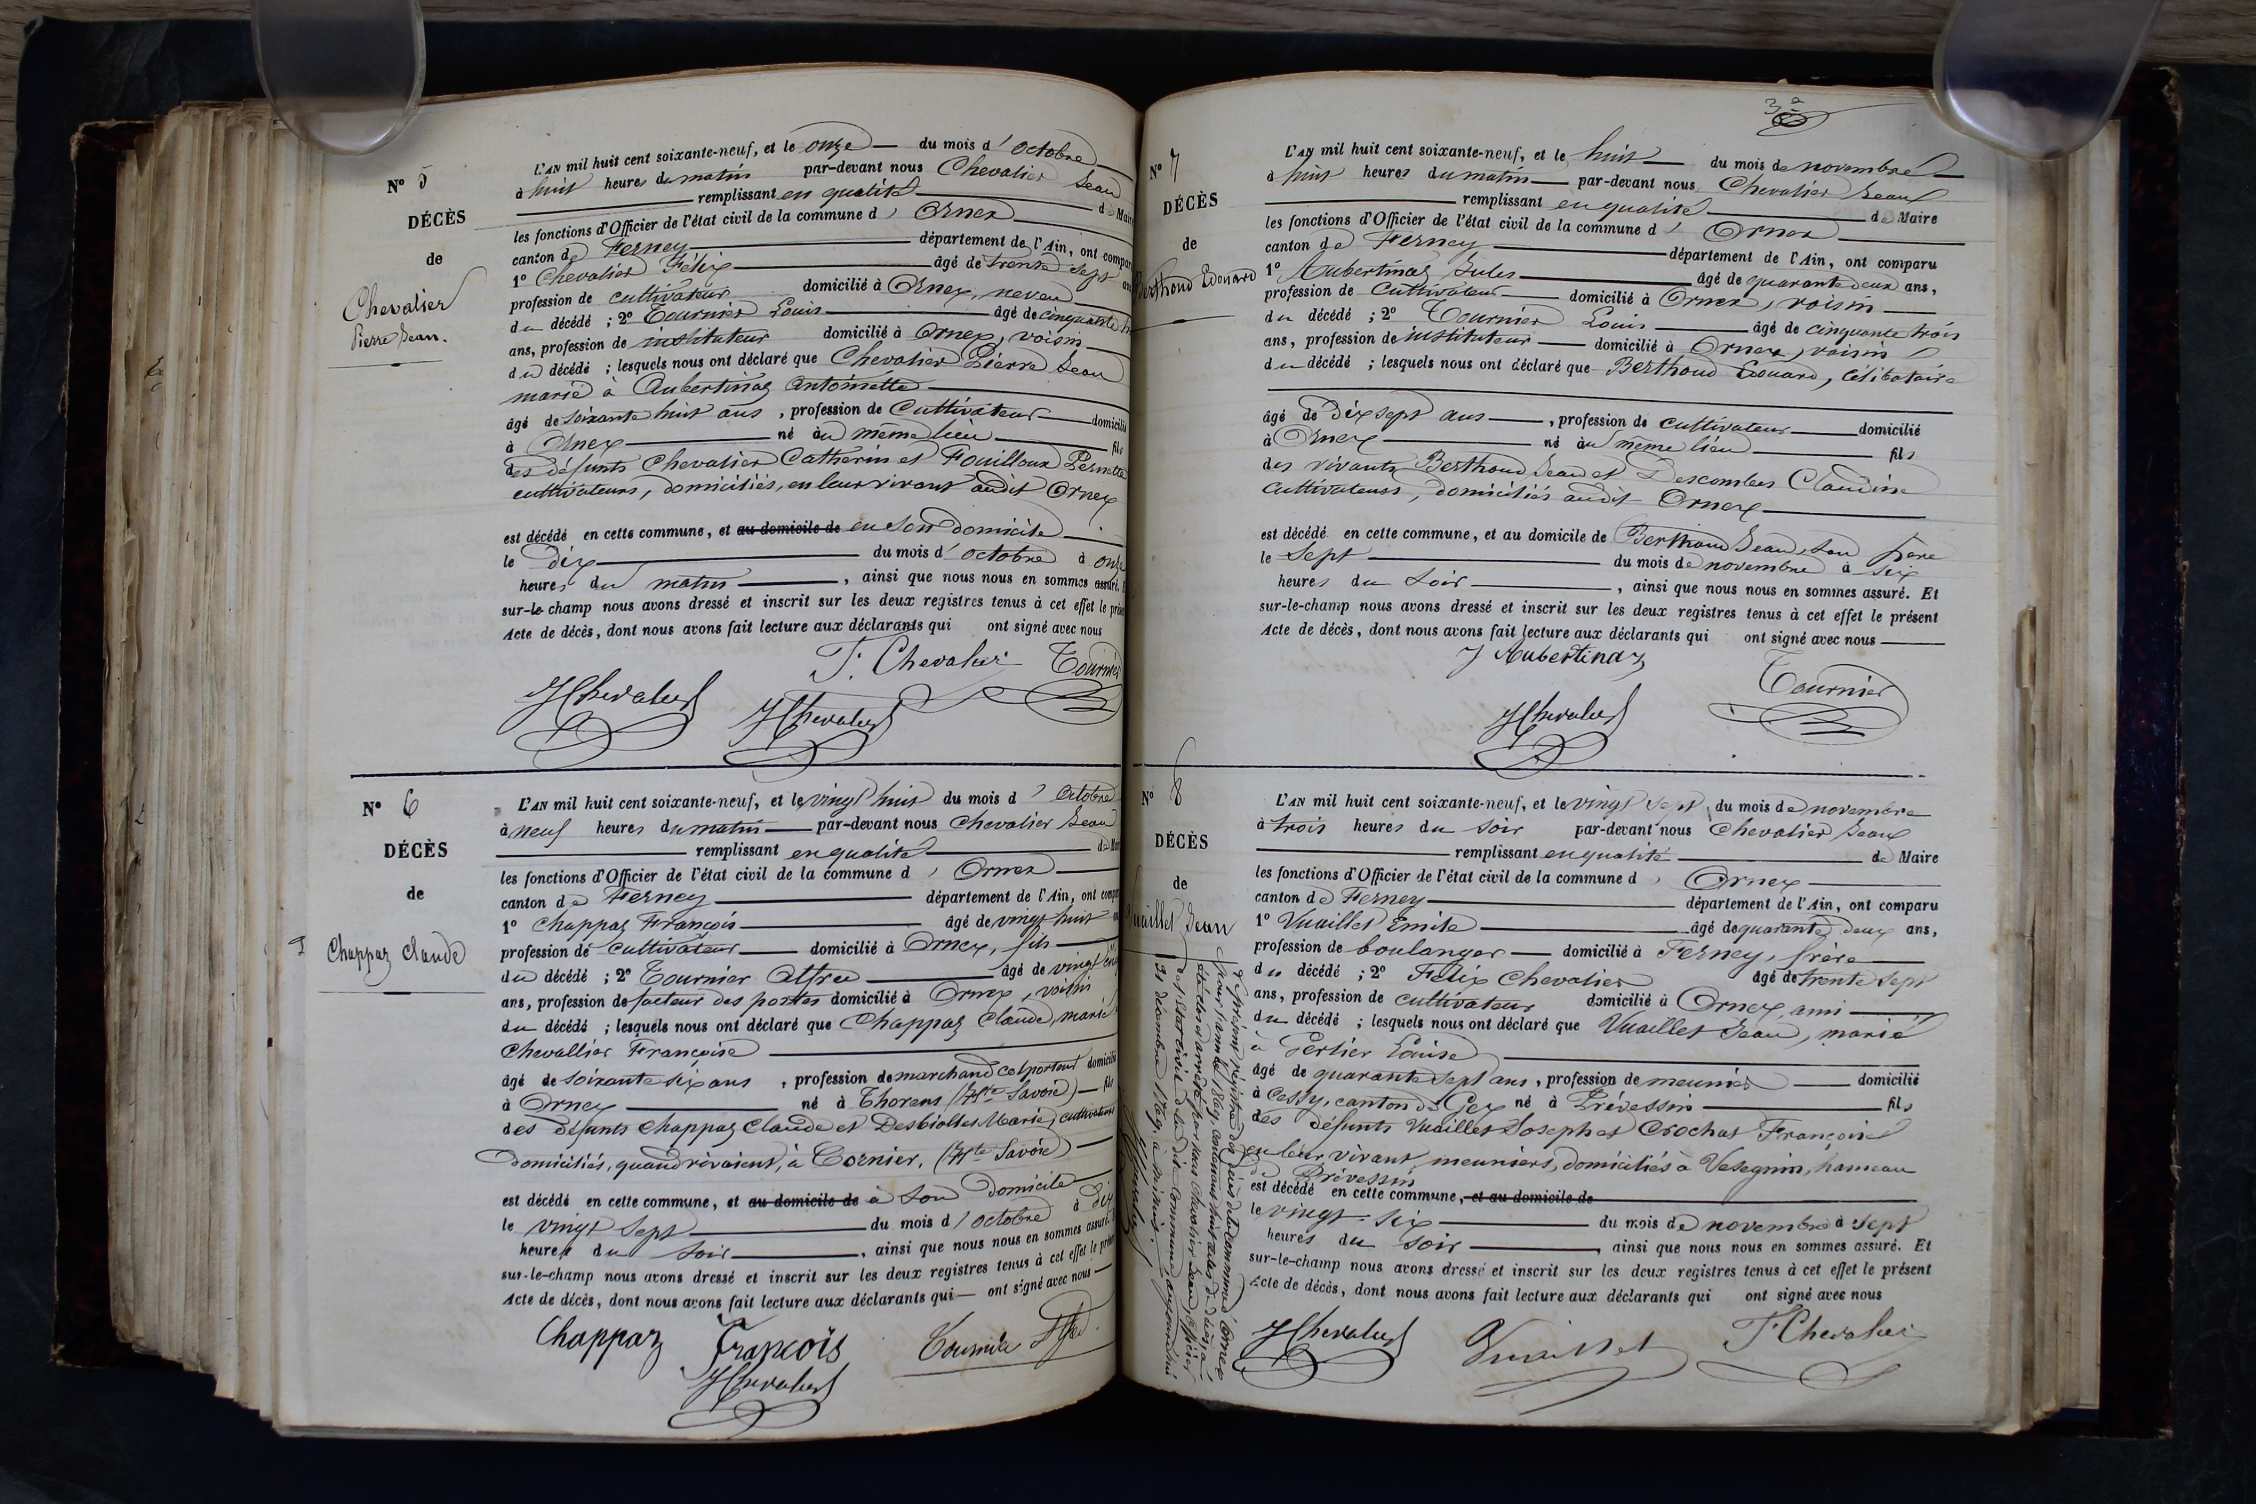 N° 5
DÉCÈS
de
Chevalier
Pierre Jean.
L'AN mil huit cent soixante-neuf, et le onze du mois d'octobre
à huit heures du matin par-devant nous Chevalier Jean
remplissant en qualité de Maire
les fonctions d'Officier de l'état civil de la commune d'Ornex
canton de Ferney département de l'Ain, ont comparu
1° Chevalier Félix âgé de trente sept ans
profession de cultivateur domicilié à Ornex, neveu
du décédé ; 2° Tournier Louis âgé de cinquante
ans, profession de instituteur domicilié à Ornex, voisin
du décédé ; lesquels nous ont déclaré que Chevalier Pierre Jean
marié à Aubertinaz Antoinette
âgé de soixante huit ans, profession de cultivateur domicilié
à Ornex né au même lieu fils
des défunts Chevalier Catherin et Fouilloux Pernette
cultivateurs, domiciliés, en leur vivant audit Ornex
est décédé en cette commune, et au domicile de en son domicile
le dix du mois d'octobre à onze
heures du matin, ainsi que nous nous en sommes assuré.
sur-le-champ nous avons dressé et inscrit sur les deux registres tenus à cet effet le présent
Acte de décès, dont nous avons fait lecture aux déclarants qui ont signé avec nous
F. Chevalier Tournier
J Chevalier J Chevalier
N° 6
DÉCÈS
de
Chappaz Claude
L'AN mil huit cent soixante-neuf, et le vingt huit du mois d'octobre
à neuf heures du matin par-devant nous Chevalier Jean
remplissant en qualité de Maire
les fonctions d'Officier de l'état civil de la commune d'Ornex
canton de Ferney département de l'Ain, ont comparu
1° Chappaz François âgé de vingt huit
profession de cultivateur domicilié à Ornex, fils
du décédé ; 2° Tournier Alfred âgé de vingt
ans, profession de facteur des postes domicilié à Ornex, voisin
du décédé ; lesquels nous ont déclaré que Chappaz Claude, marié
Chevallier Françoise
âgé de soixante six ans, profession de marchand colporteur domicilié
à Ornex né à Thorens (Hte Savoie) fils
des défunts Chappaz Claude et Desbiolles Marie, cultivateurs
domiciliés, quand vivaient, à Cornier, (Hte Savoie)
est décédé en cette commune, et au domicile de à son domicile
le vingt sept du mois d'octobre à dix
heures du soir, ainsi que nous nous en sommes assuré.
sur-le-champ nous avons dressé et inscrit sur les deux registres tenus à cet effet le présent
Acte de décès, dont nous avons fait lecture aux déclarants qui ont signé avec nous
Chappaz François Tournier Alfred
J Chevalier
N° 7
DÉCÈS
de
Berthoud Edouard
L'AN mil huit cent soixante-neuf, et le huit du mois de novembre
à huit heures du matin par-devant nous Chevalier Jean
remplissant en qualité de Maire
les fonctions d'Officier de l'état civil de la commune d'Ornex
canton de Ferney département de l'Ain, ont comparu
1° Aubertinaz Jules âgé de quarante deux ans,
profession de cultivateur domicilié à Ornex, voisin
du décédé ; 2° Tournier Louis âgé de cinquante trois
ans, profession de instituteur domicilié à Ornex, voisin
du décédé ; lesquels nous ont déclaré que Berthoud Edouard, célibataire
âgé de dix sept ans, profession de cultivateur domicilié
à Ornex né au même lieu fils
des vivants Berthoud Jean et Descombes Claudine
cultivateurs, domiciliés audit Ornex
est décédé en cette commune, et au domicile de Berthoud Jean, son père
le sept du mois de novembre à six
heures du soir, ainsi que nous nous en sommes assuré. Et
sur-le-champ nous avons dressé et inscrit sur les deux registres tenus à cet effet le présent
Acte de décès, dont nous avons fait lecture aux déclarants qui ont signé avec nous
J Aubertinaz
Tournier
J Chevalier
N° 8
DÉCÈS
de
Vuaillet Jean
L'AN mil huit cent soixante-neuf, et le vingt sept du mois de novembre
à trois heures du soir par-devant nous Chevalier Jean
remplissant en qualité de Maire
les fonctions d'Officier de l'état civil de la commune d'Ornex
canton de Ferney département de l'Ain, ont comparu
1° Vuaillet Emile âgé de quarante deux ans,
profession de boulanger domicilié à Ferney, frère
du décédé ; 2° Félix Chevalier âgé de trente sept
ans, profession de cultivateur domicilié à Ornex, ami
du décédé ; lesquels nous ont déclaré que Vuaillet Jean, marié
à Pertier Louise
âgé de quarante sept ans, profession de meunier domicilié
à Cessy, canton de Gex né à Prévessin fils
des défunts Vuaillet Joseph et Crochat Françoise
en leur vivant, meuniers, domiciliés à Vesegnin, hameau
de Prévessin
est décédé en cette commune, et au domicile de
le vingt-six du mois de novembre à sept
heures du soir, ainsi que nous nous en sommes assuré. Et
sur-le-champ nous avons dressé et inscrit sur les deux registres tenus à cet effet le présent
Acte de décès, dont nous avons fait lecture aux déclarants qui ont signé avec nous
J Chevalier Vuaillet F. Chevalier
Le présent registre des décès de la commune d'Ornex
pour l'année 1869, contenant huit actes de décès a
été clos et arrêté par nous Chevalier Jean, officier
de l'Etat civil de la dite commune aujourd'hui
31 décembre 1869, à minuit.
J Chevalier